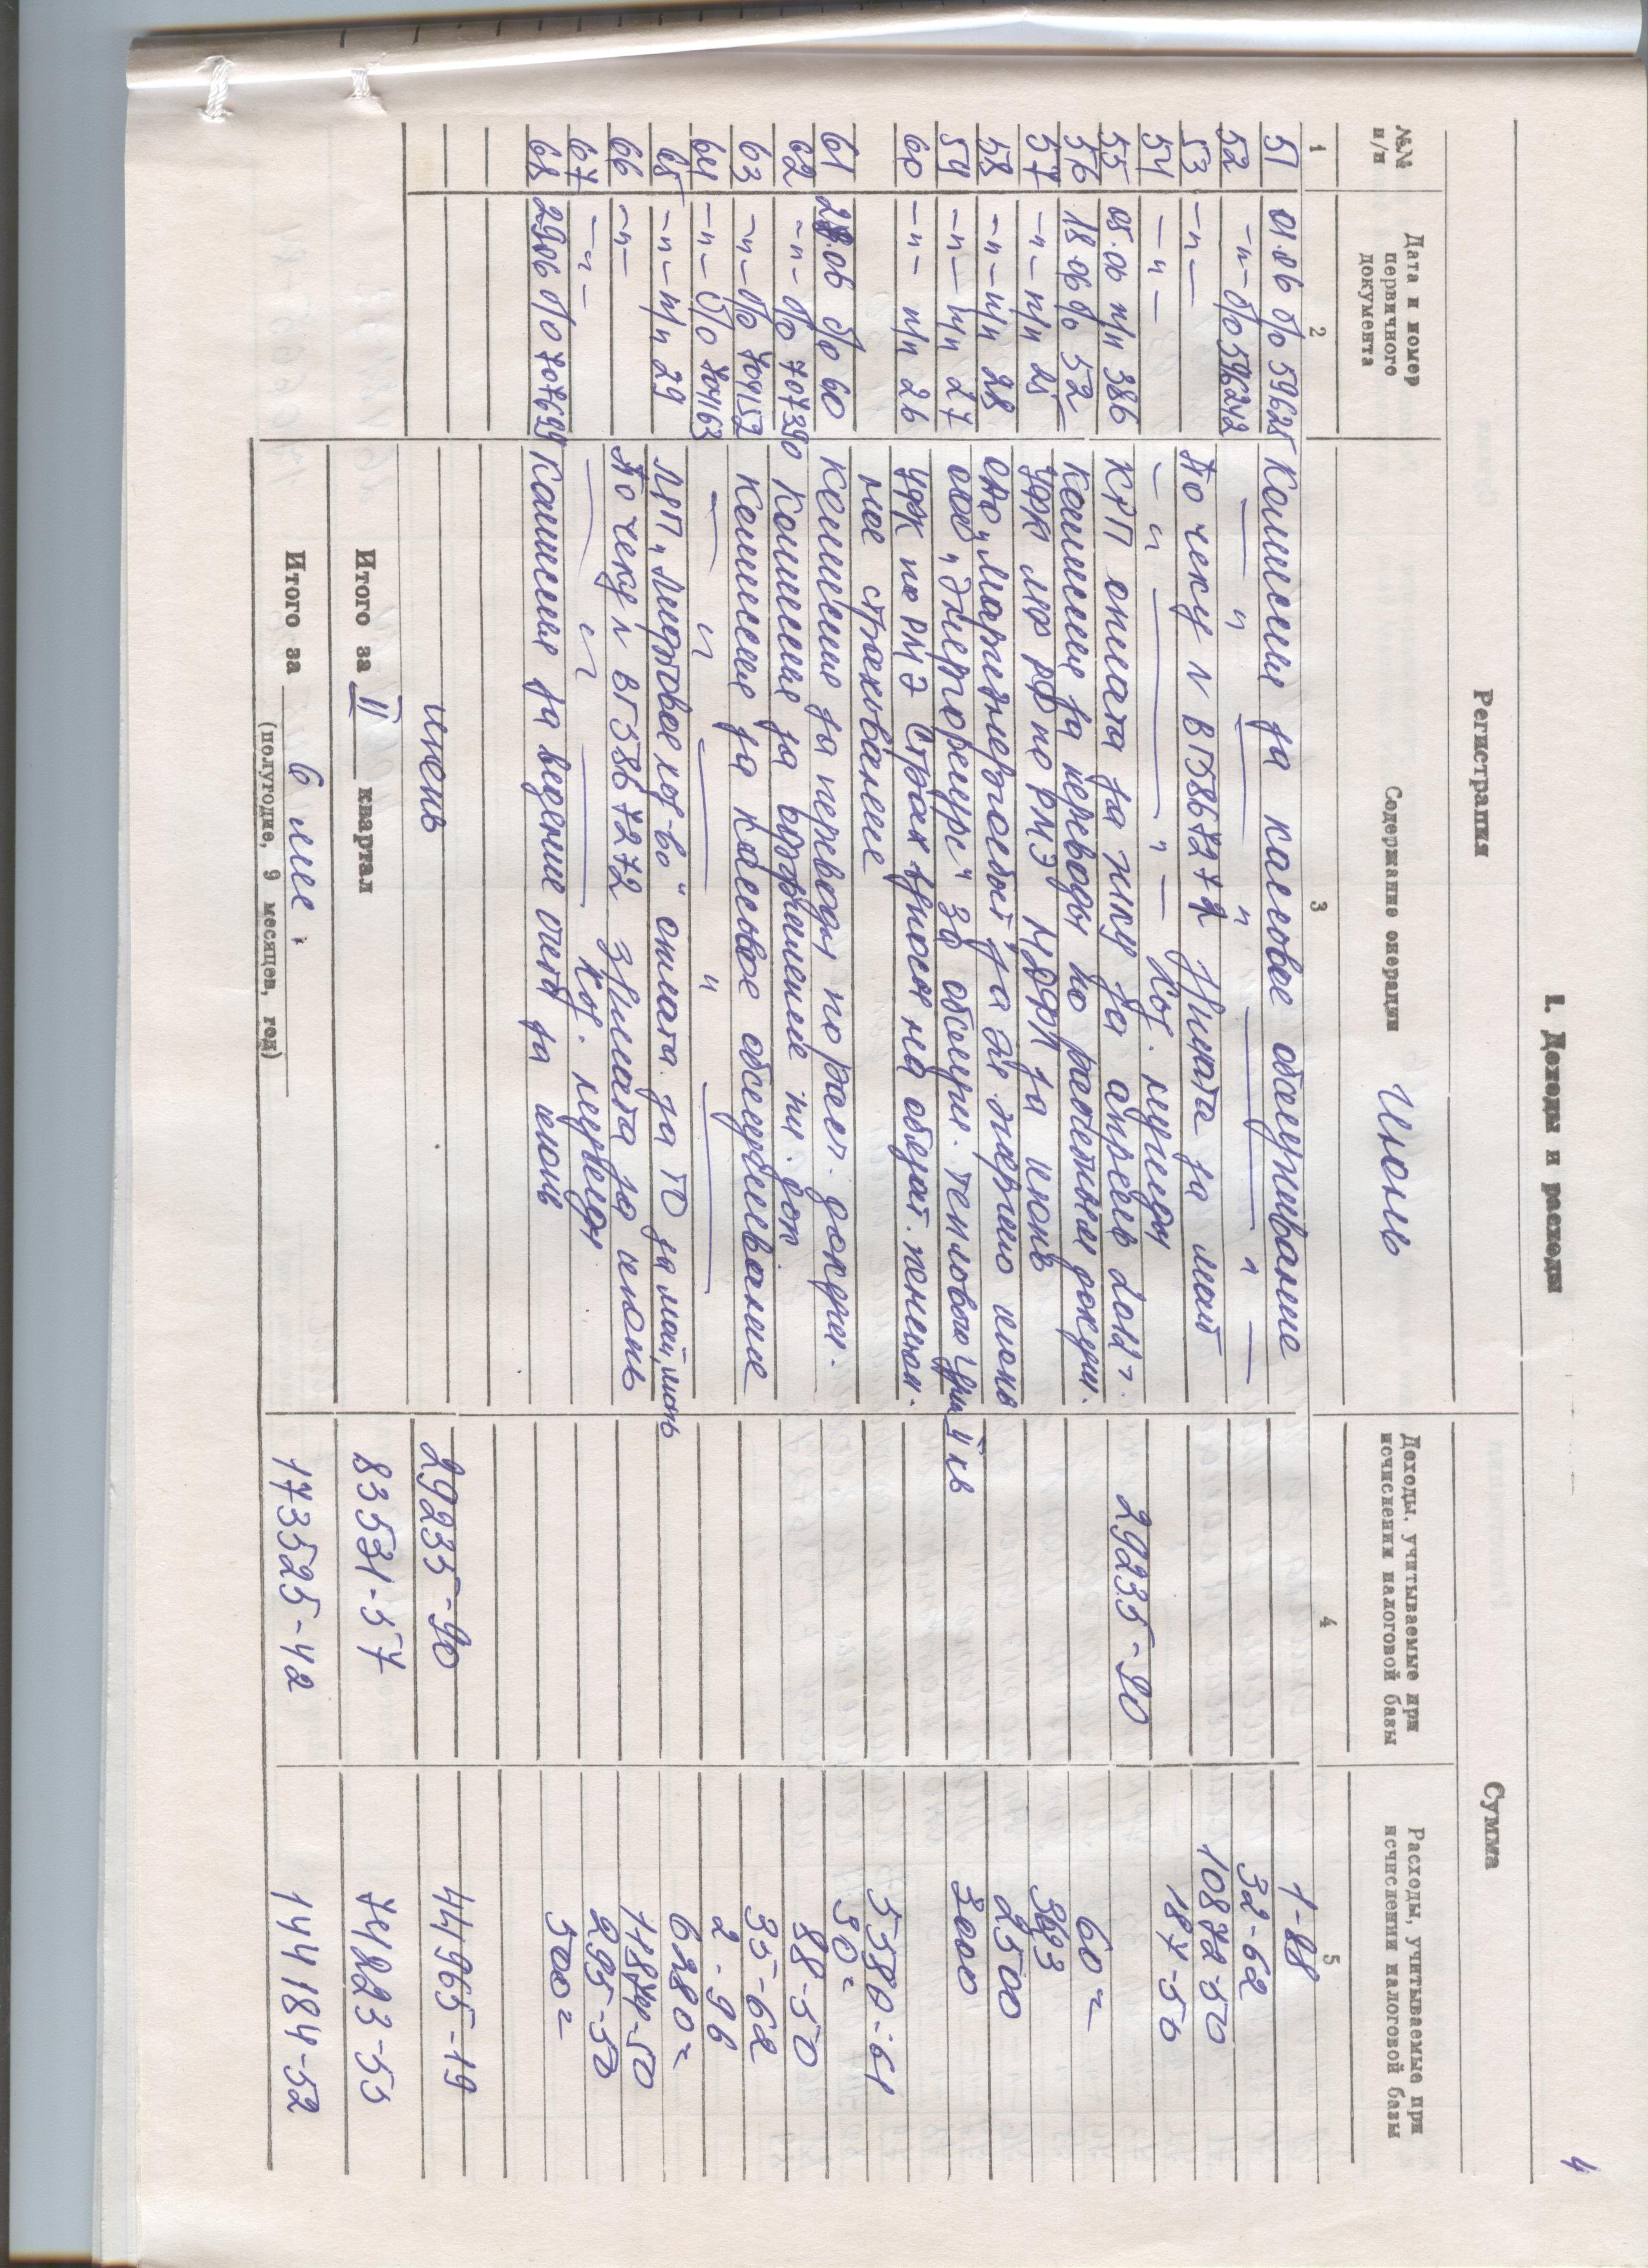 4
I. Доходы и расходы
Регистрация Сумма
№№ п/п Дата и номер первичного документа Содержание операции Июнь Доходы, учитываемые при исчислении налоговой базы Расходы, учитываемые при исчислении налоговой базы
1 2 3 4 5
51 01.06 б/о 59625 Комиссия за кассовое обслуживание 1-88
52 -"- б/о 596242 — " — " — " — 32-62
53 -"- По чеку № ВГ586727 З/плата за май 10872-50
54 -"- — " — " — Ком. 187-50
55 05.06 п/п 386 КГП оплата за за апрель 29235-90
56 18.06 б/о 52 Комиссия за переводы по расчетным докум. 60=
57 -"- п/п 25 УФК МФ РФ по РМЭ НДФЛ за июнь 3693
58 -"- п/п 28 ОАО "Мариэнергосбыт" за эл. энергию июнь 2500
59 -"- п/п 27 ООО "Энергоресурс" За обслуж. теплового узла II кв 3000
60 -"- п/п 26 УФК по РМЭ Страх. взносы на обязат. пенсион.
ное страхование 5580-61
61 28.06 б/о 60 Комиссия за переводы по расч. докум. 30=
62 -"- б/о 707390 Комиссия за 88-50
63 -"- б/о 704152 Комиссия за кассовое обслуживание 35-62
64 -"- б/о 704163 — " — " — 2-96
65 -"- п/п 29 "Лифтовое хоз-во" оплата за ТО за май, июнь 6280=
66 -"- По чеку № ВГ5867272 З/плата за июнь
67 -"- — " — Ком. 295-50
68 29.06 б/о 707699 Комиссия за ведение счета за июнь 500=
июнь 29235-90 44965-19
Итого за II квартал 83531-57 74823-53
Итого за 6 мес. 173525-42 144184-52
(полугодие, 9 месяцев, год)